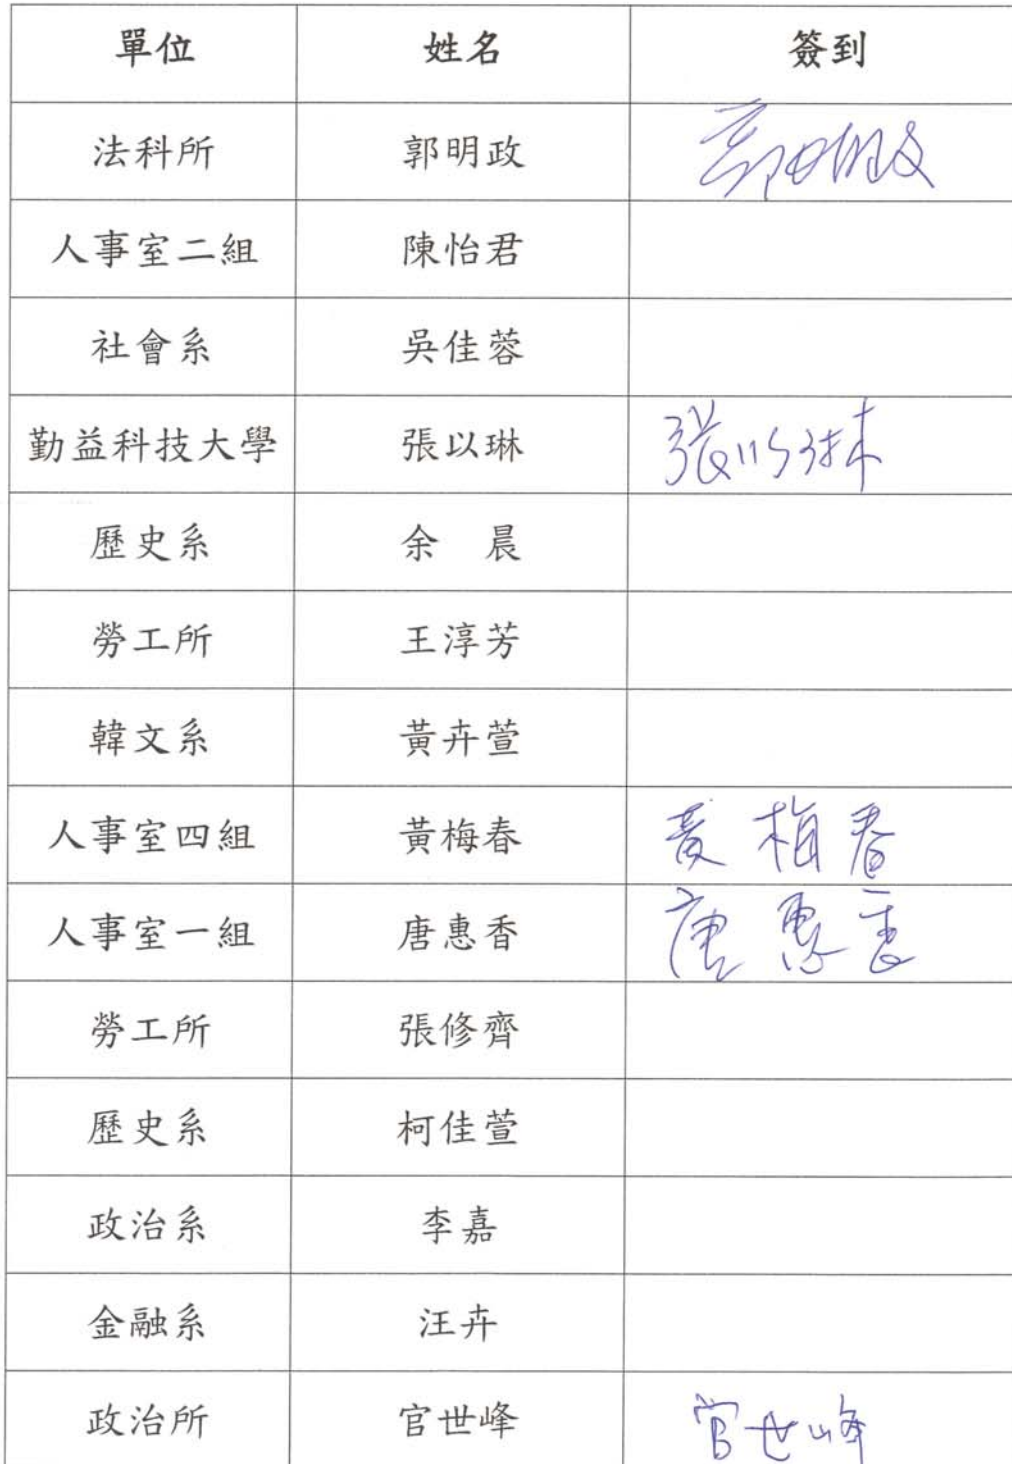 單位 姓名 簽到
法科所 郭明政 郭明政
人事室二組 陳怡君
社會系 吳佳蓉
勤益科技大學 張以琳 張以琳
歷史系 余 晨
勞工所 王淳芳
韓文系 黃卉萱
人事室四組 黃梅春 黃梅春
人事室一組 唐惠香 唐惠香
勞工所 張修齊
歷史系 柯佳萱
政治系 李嘉
金融系 汪卉
政治所 官世峰 官世峰